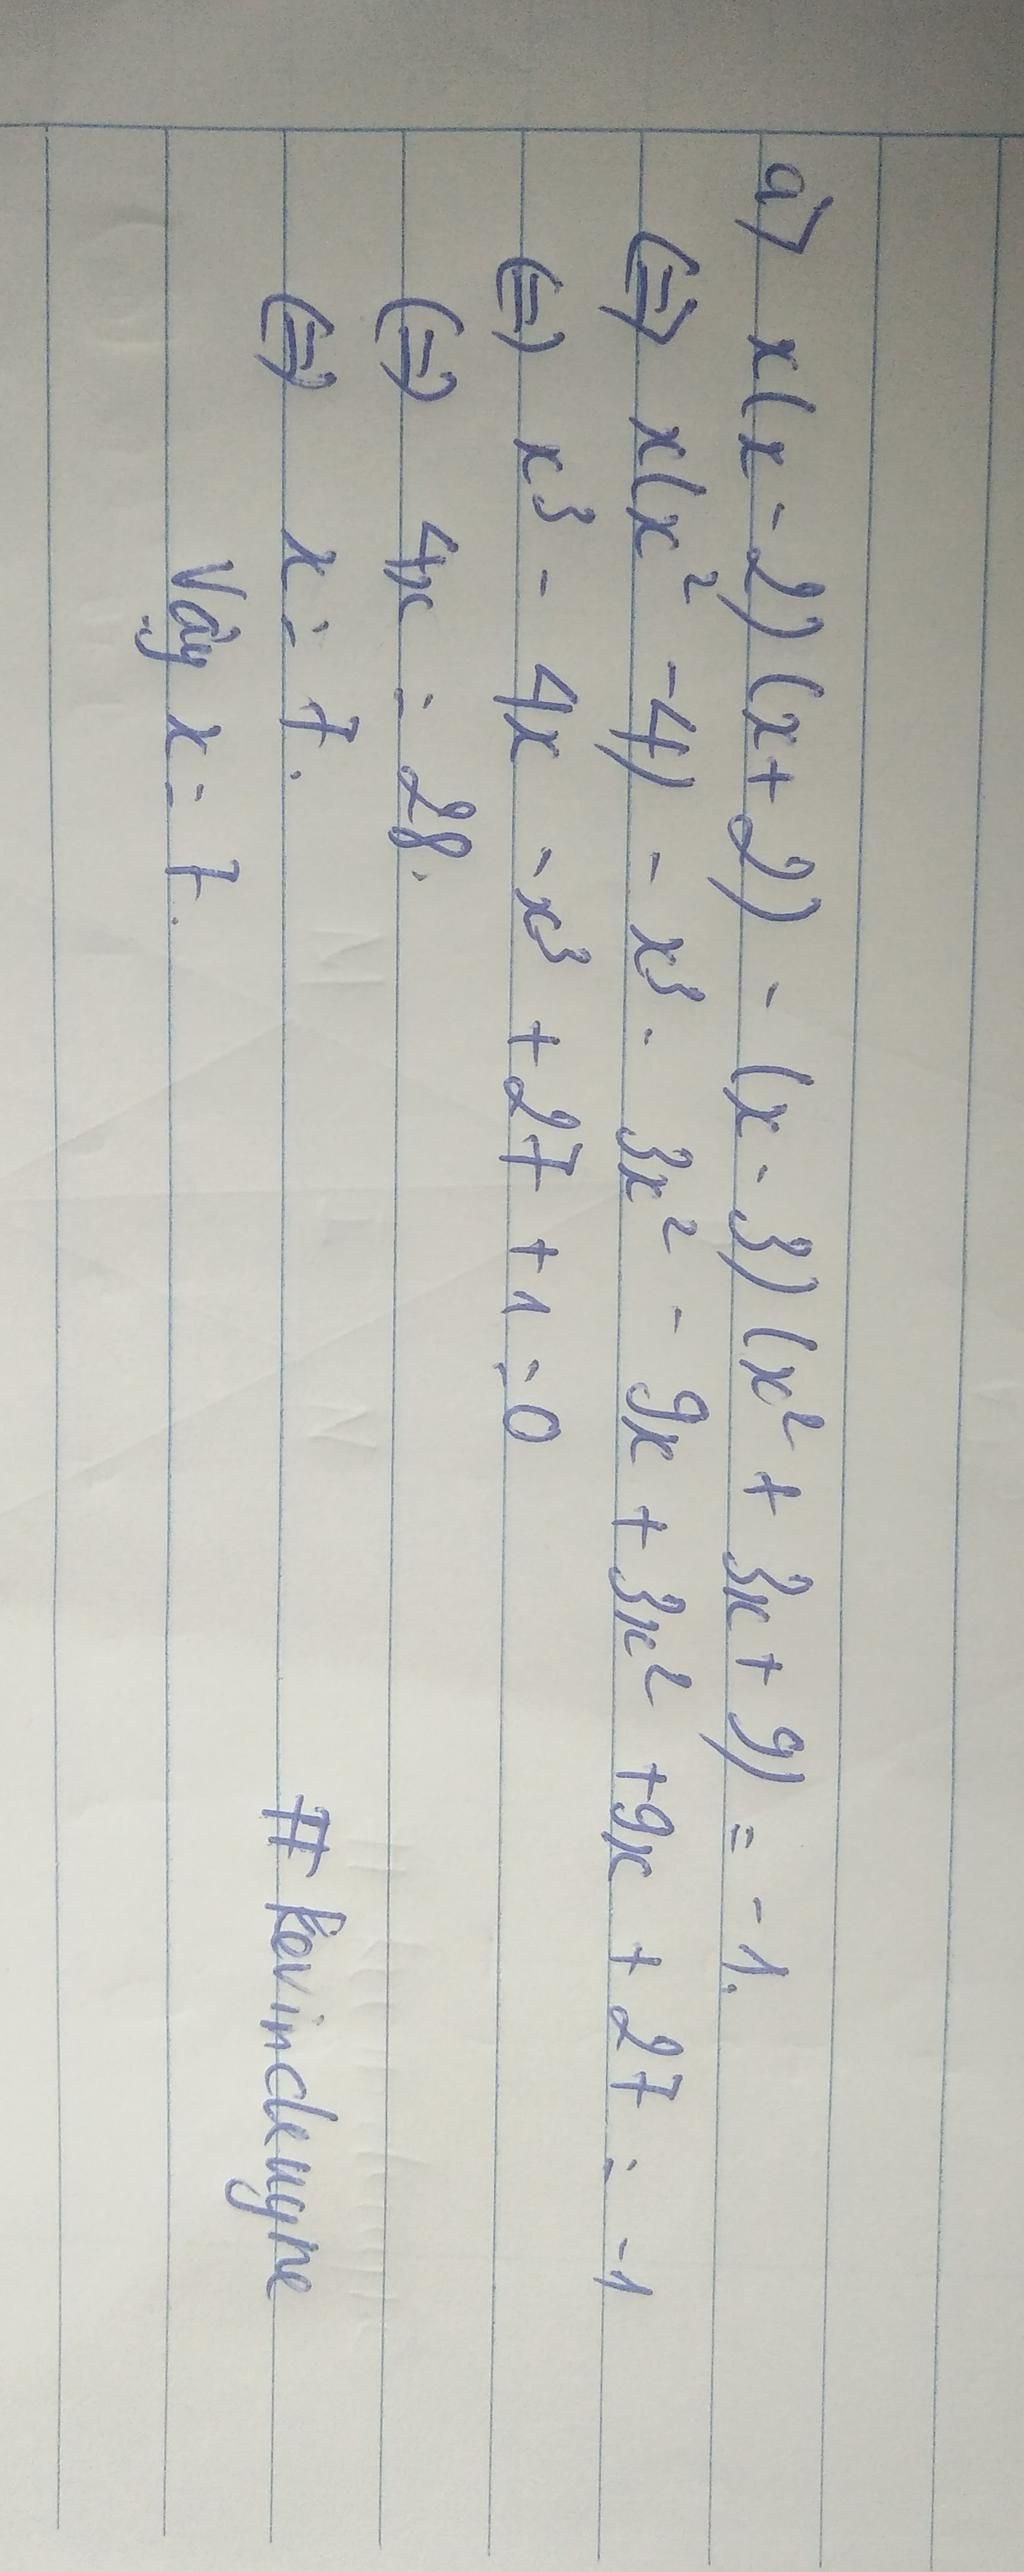 a) x(x-2)(x+2) - (x-3)(x² + 3x + 9) = -1.
(=) x(x² - 4) - x³ - 3x² - 9x + 3x² + 9x + 27 = -1
(=) x³ - 4x - x³ + 27 + 1 = 0
(=) 4x = 28.
(=) x = 7.
# kevincleugne
Vậy x = 7.